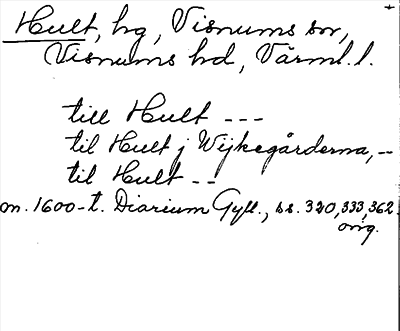 Hult, hg, Visnums sn,
Visnums hd, Värml. l.
till Hult ---
til Hult j Wijkegårderna, --
til Hult --
m. 1600-t. Diarium Gyll., ss. 320, 333, 362.
orig.